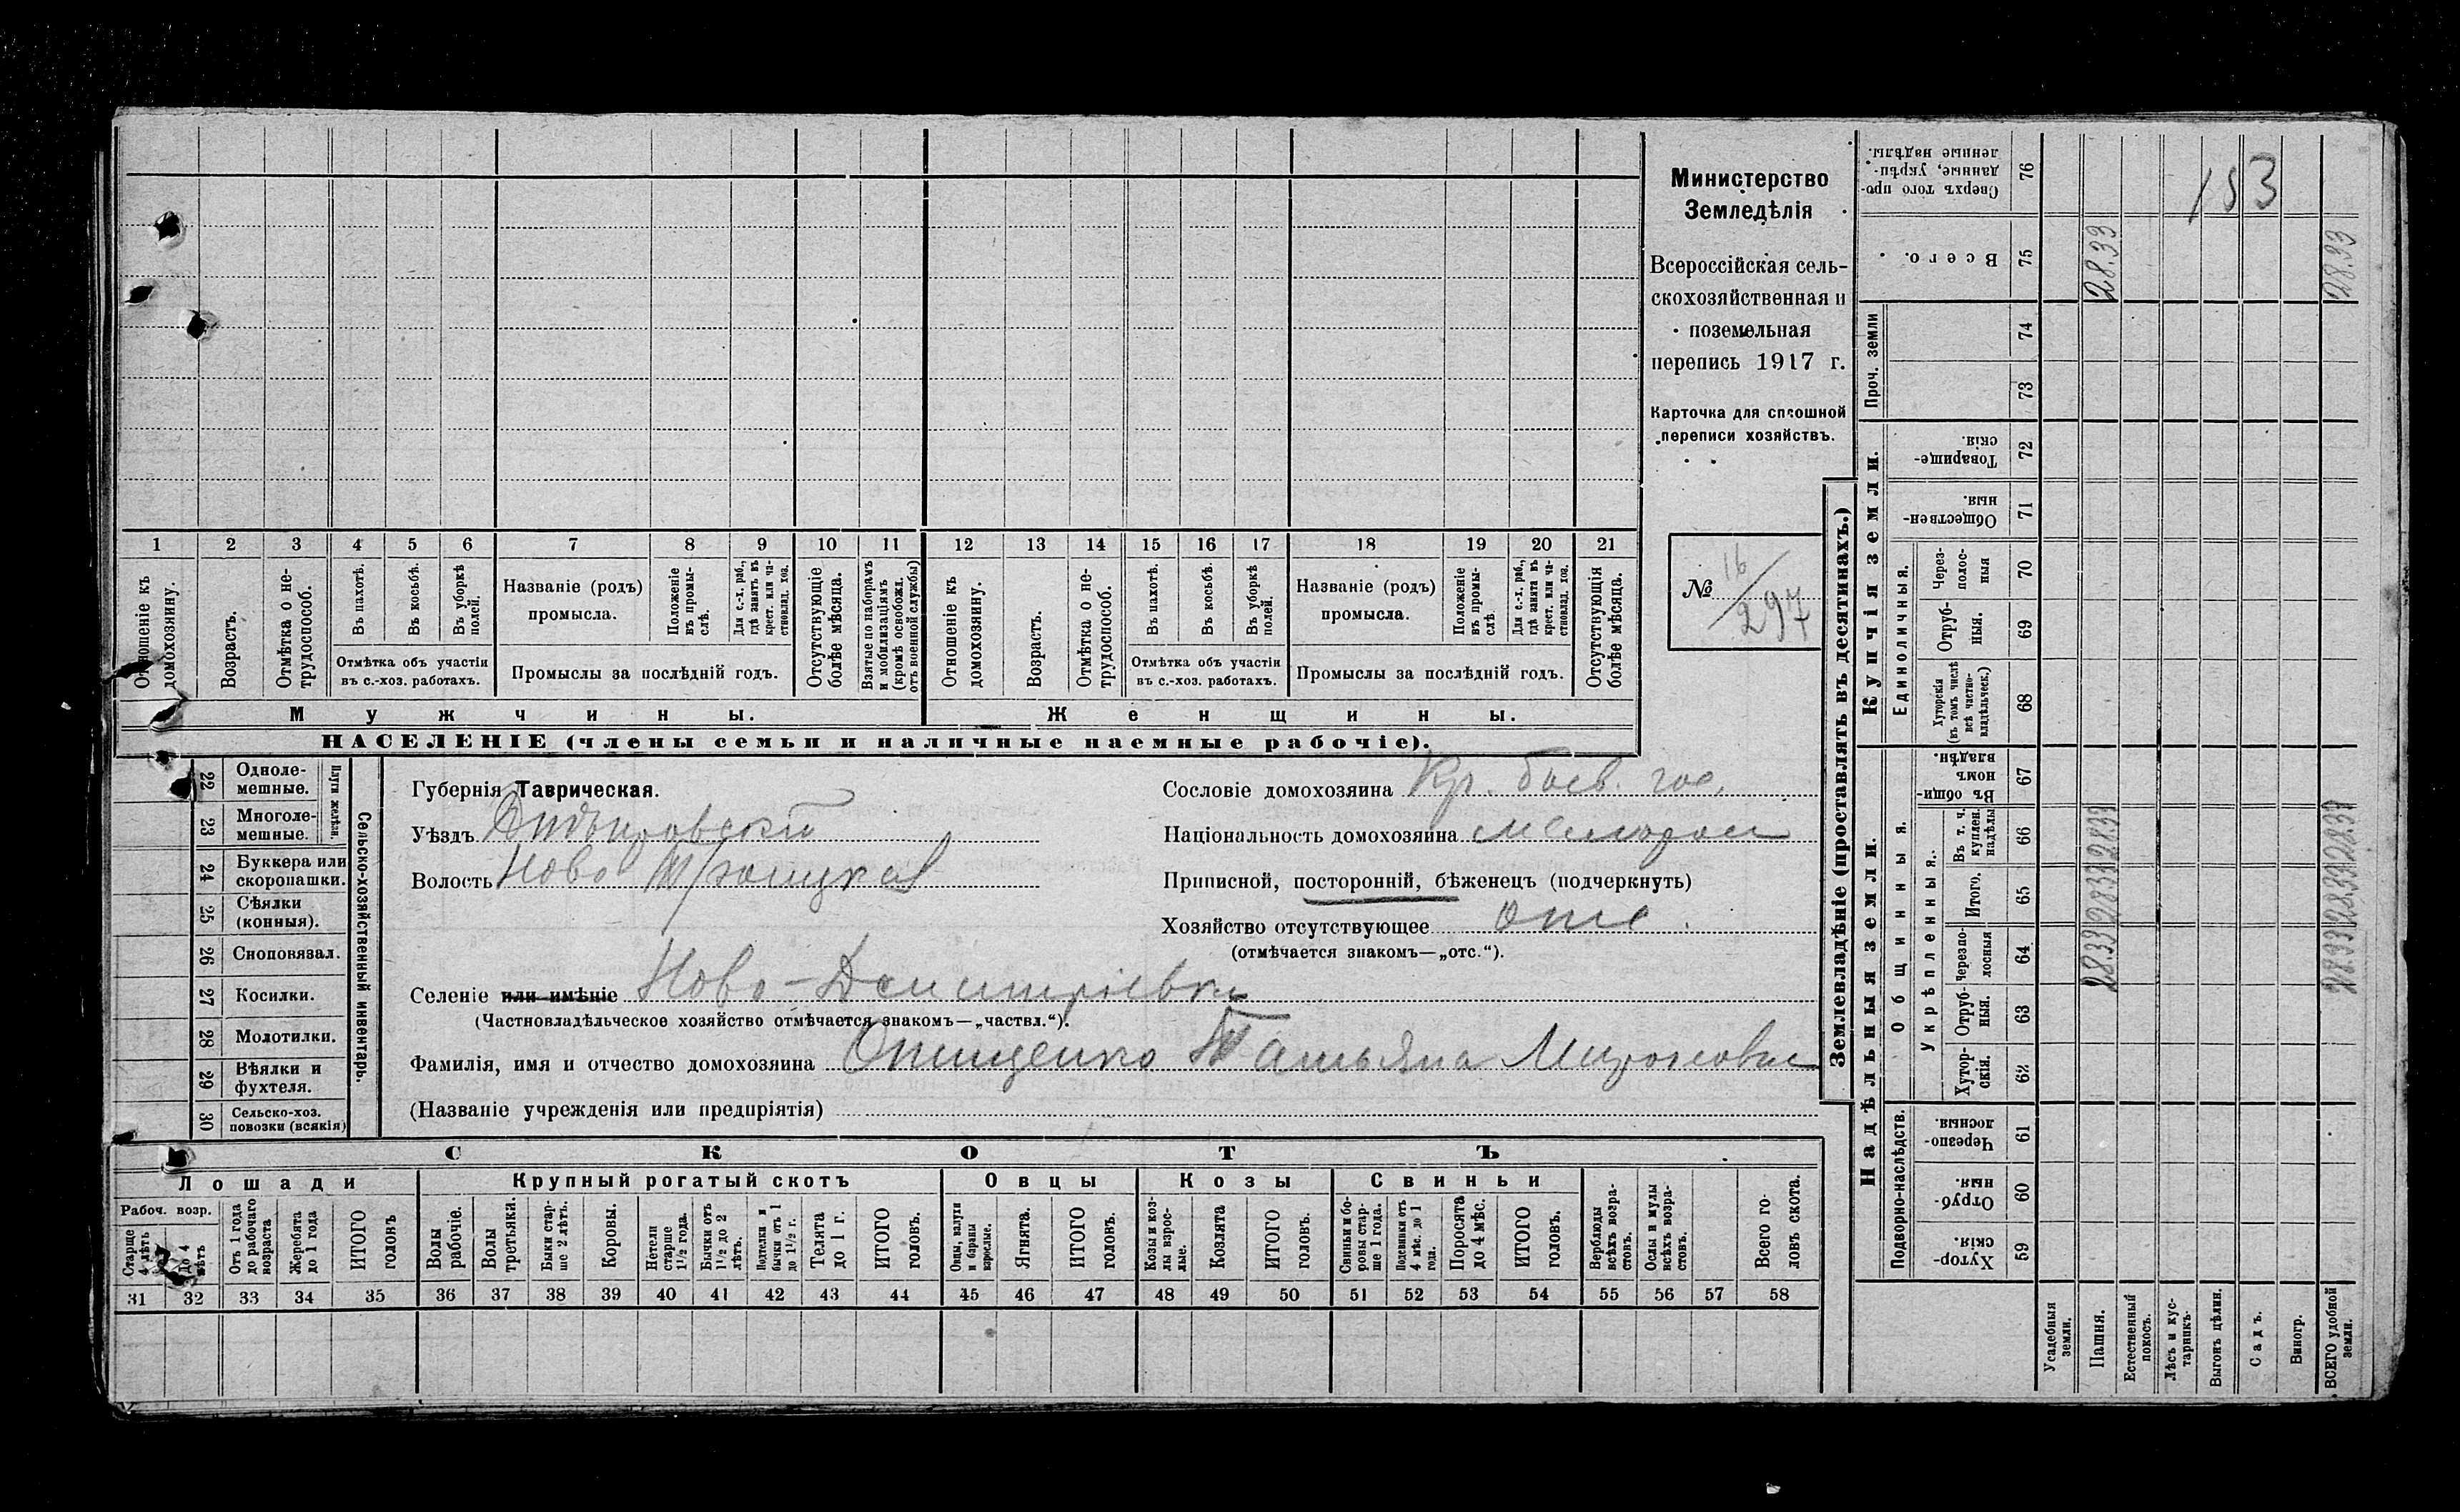 Министерство
Земледѣлія
Всероссійская сель-
скохозяйственная и
поземельная
перепись 1917 г.
Карточка для сплошной
переписи хозяйствъ.
№ 16/297
1 2 3 4 5 6 7 8 9 10 11 12 13 14 15 16 17 18 19 20 21
Отношеніе къ домохозяину.
Возрастъ.
Отмѣтка о не-трудоспособ.
Въ пахотѣ.
Въ косьбѣ.
Въ уборкѣ полей.
Отмѣтка объ участіи
въ с.-хоз. работахъ.
Названіе (родъ)
промысла.
Положеніе въ промы-слѣ.
Для с.-х. раб., гдѣ занятъ въ крест. или ча-стновлад. хоз.
Промыслы за послѣдній годъ.
Отсутствующіе болѣе мѣсяца.
Взятые по наборамъ и мобилизаціямъ (кромѣ освобожд. отъ военной службы)
Отношеніе къ домохозяину.
Возрастъ.
Отмѣтка о не-трудоспособ.
Въ пахотѣ.
Въ косьбѣ.
Въ уборкѣ полей.
Отмѣтка объ участіи
въ с.-хоз. работахъ.
Названіе (родъ)
промысла.
Положеніе въ промы-слѣ
Для с.-х. раб., гдѣ занята въ крест. или ча-стновлад. хоз.
Промыслы за послѣдній годъ.
Отсутствующія болѣе мѣсяца.
Мужчины. Женщины.
НАСЕЛЕНІЕ (члены семьи и наличные наемные рабочіе).
22 Одноле-мешные.
23 Многоле-мешные.
Плуги желѣзн.
24 Буккера или скоропашки.
25 Сѣялки (конныя).
26 Сноповязал.
27 Косилки.
28 Молотилки.
29 Вѣялки и фухтеля.
30 Сельско-хоз. повозки (всякія)
Сельско-хозяйственный инвентарь.
Губернія Таврическая.
Уѣздъ Днѣпровскій
Волость Ново Троицкая
Селеніе или имѣніе Ново-Дмитріевка
(Частновладѣльческое хозяйство отмѣчается знакомъ—„частвл.“).
Фамилія, имя и отчество домохозяина Онищенко Татьяна Мироновна
(Названіе учрежденія или предпріятія)
Сословіе домохозяина Кр.
Національность домохозяина малорос
Приписной, посторонній, бѣженецъ (подчеркнуть)
Хозяйство отсутствующее отс.
(отмѣчается знакомъ—„отс.“).
СКОТЪ
Лошади Крупный рогатый скотъ Овцы Козы Свиньи
Рабоч. возр.
Старше 4 лѣтъ
до 4 лѣтъ
Отъ 1 года до рабочаго возраста
Жеребята до 1 года
ИТОГО головъ
Волы рабочіе.
Волы третьяки.
Быки стар-ше 2 лѣтъ.
Коровы.
Нетели старше 1½ года.
Бычки отъ 1½ до 2 лѣтъ.
Подтелки и бычки отъ 1 до 1½ г.
Телята до 1 г.
ИТОГО головъ.
Овцы, валухи и бараны взрослые.
Ягнята.
ИТОГО головъ.
Козы и коз-лы взрос-лые.
Козлята
ИТОГО головъ.
Свиньи и бо-ровы стар-ше 1 года.
Подсвинки отъ 4 мѣс. до 1 года.
Поросята до 4 мѣс.
ИТОГО головъ.
Верблюды всѣхъ возра-стовъ.
Ослы и мулы всѣхъ возра-стовъ.
Всего го-ловъ скота.
31 32 33 34 35 36 37 38 39 40 41 42 43 44 45 46 47 48 49 50 51 52 53 54 55 56 57 58
Землевладѣніе (проставлять въ десятинахъ.)
Надѣльныя земли. Купчія земли.
Подворно-наслѣдств.
Общинныя.
Укрѣпленныя.
Единоличныя.
Проч. земли
Хутор-скія. 59
Отруб-ныя. 60
Черезпо-лосныя. 61
Хутор-скія. 62
Отруб-ныя. 63
Черезпо-лосныя 64 2833 2833
Итого. 65 2833 2833
Въ т. ч. куплен. надѣлы 66 2833 2833
Въ общин-номъ владѣн. 67
Хуторскія (въ томъ числѣ всѣ частно-владѣльческ.) 68
Отруб-ныя. 69
Через-полос-ныя 70
Обществен-ныя. 71
Товарище-скія. 72
73
74
Всего. 75 28.33 28.33
Сверхъ того про-данные, укрѣп-ленные надѣлы. 76
153
Усадебныя земли.
Пашня.
Естественный покосъ.
Лѣсъ и кус-тарникъ.
Выгонъ цѣлин.
Садъ.
Виногр.
ВСЕГО удобной земли.